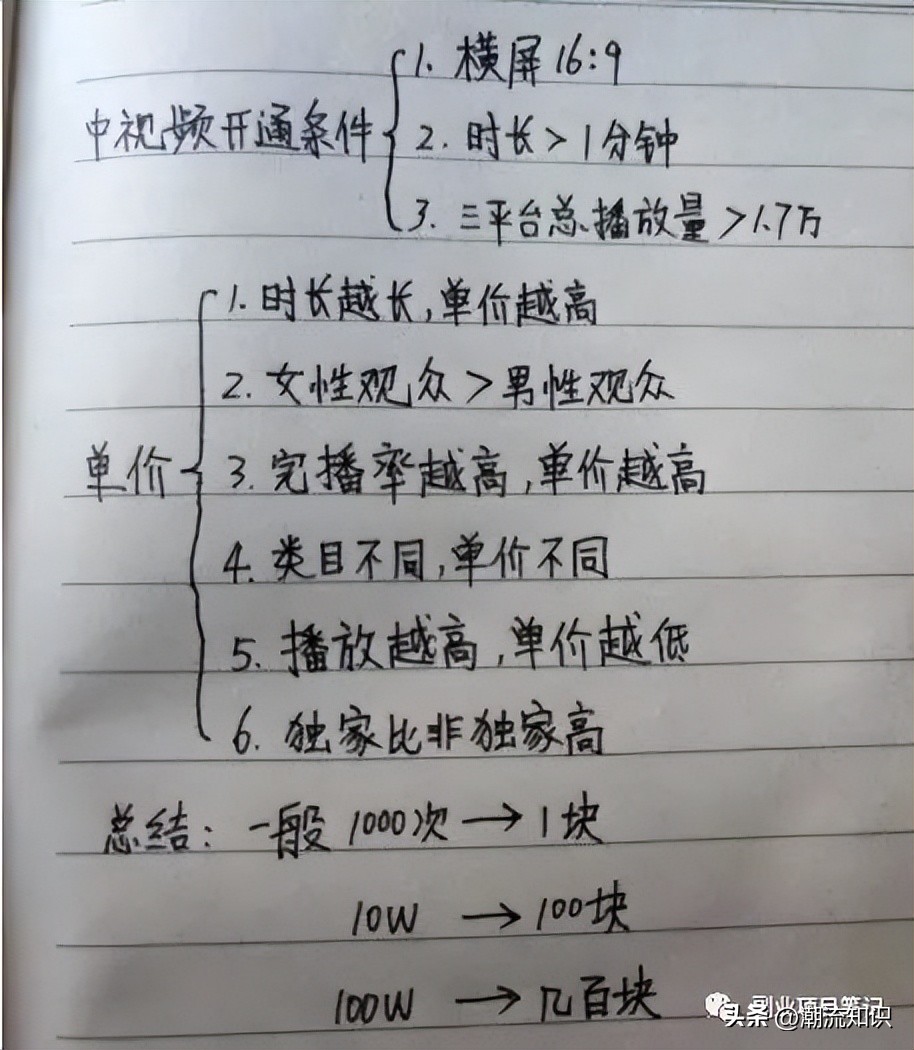 中视频开通条件
1. 横屏 16:9
2. 时长 > 1分钟
3. 三平台总播放量 > 1.7万
单价
1. 时长越长,单价越高
2. 女性观众 > 男性观众
3. 完播率越高,单价越高
4. 类目不同,单价不同
5. 播放越高,单价越低
6. 独家比非独家高
总结: 一般 1000次 → 1块
10W → 100块
100W → 几百块
副业项目笔记
头条 @潮流知识